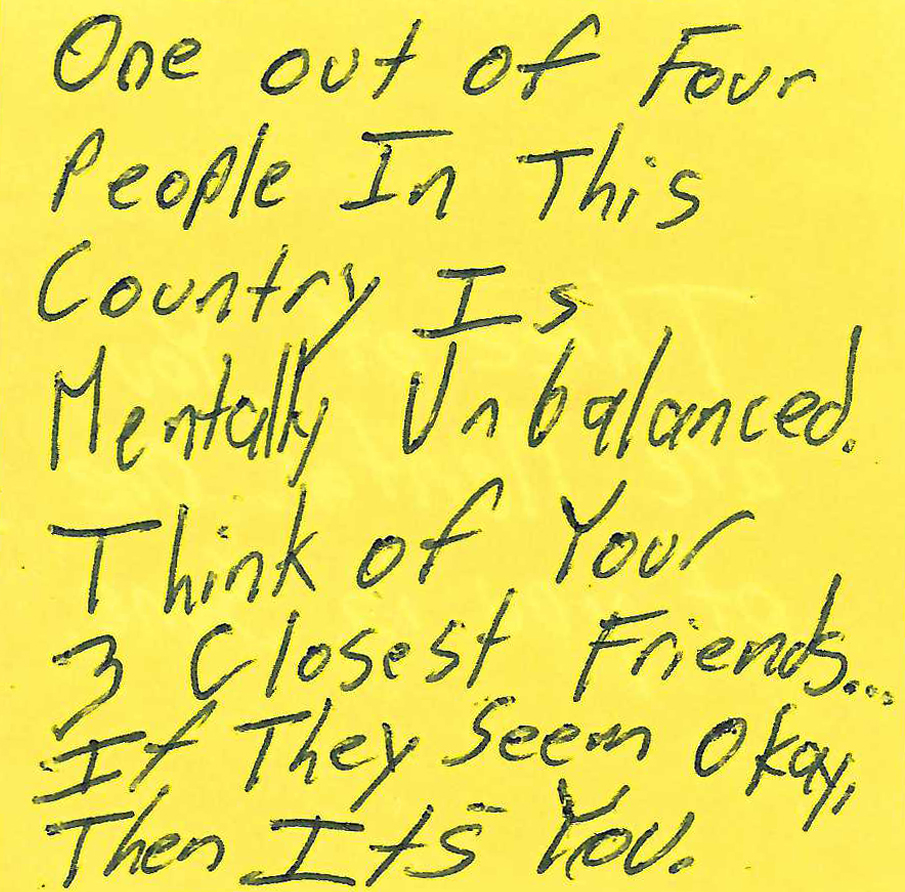 One out of Four
People In This
Country Is
Mentally Unbalanced.
Think of Your
3 Closest Friends...
If They Seem Okay,
Then It's You.